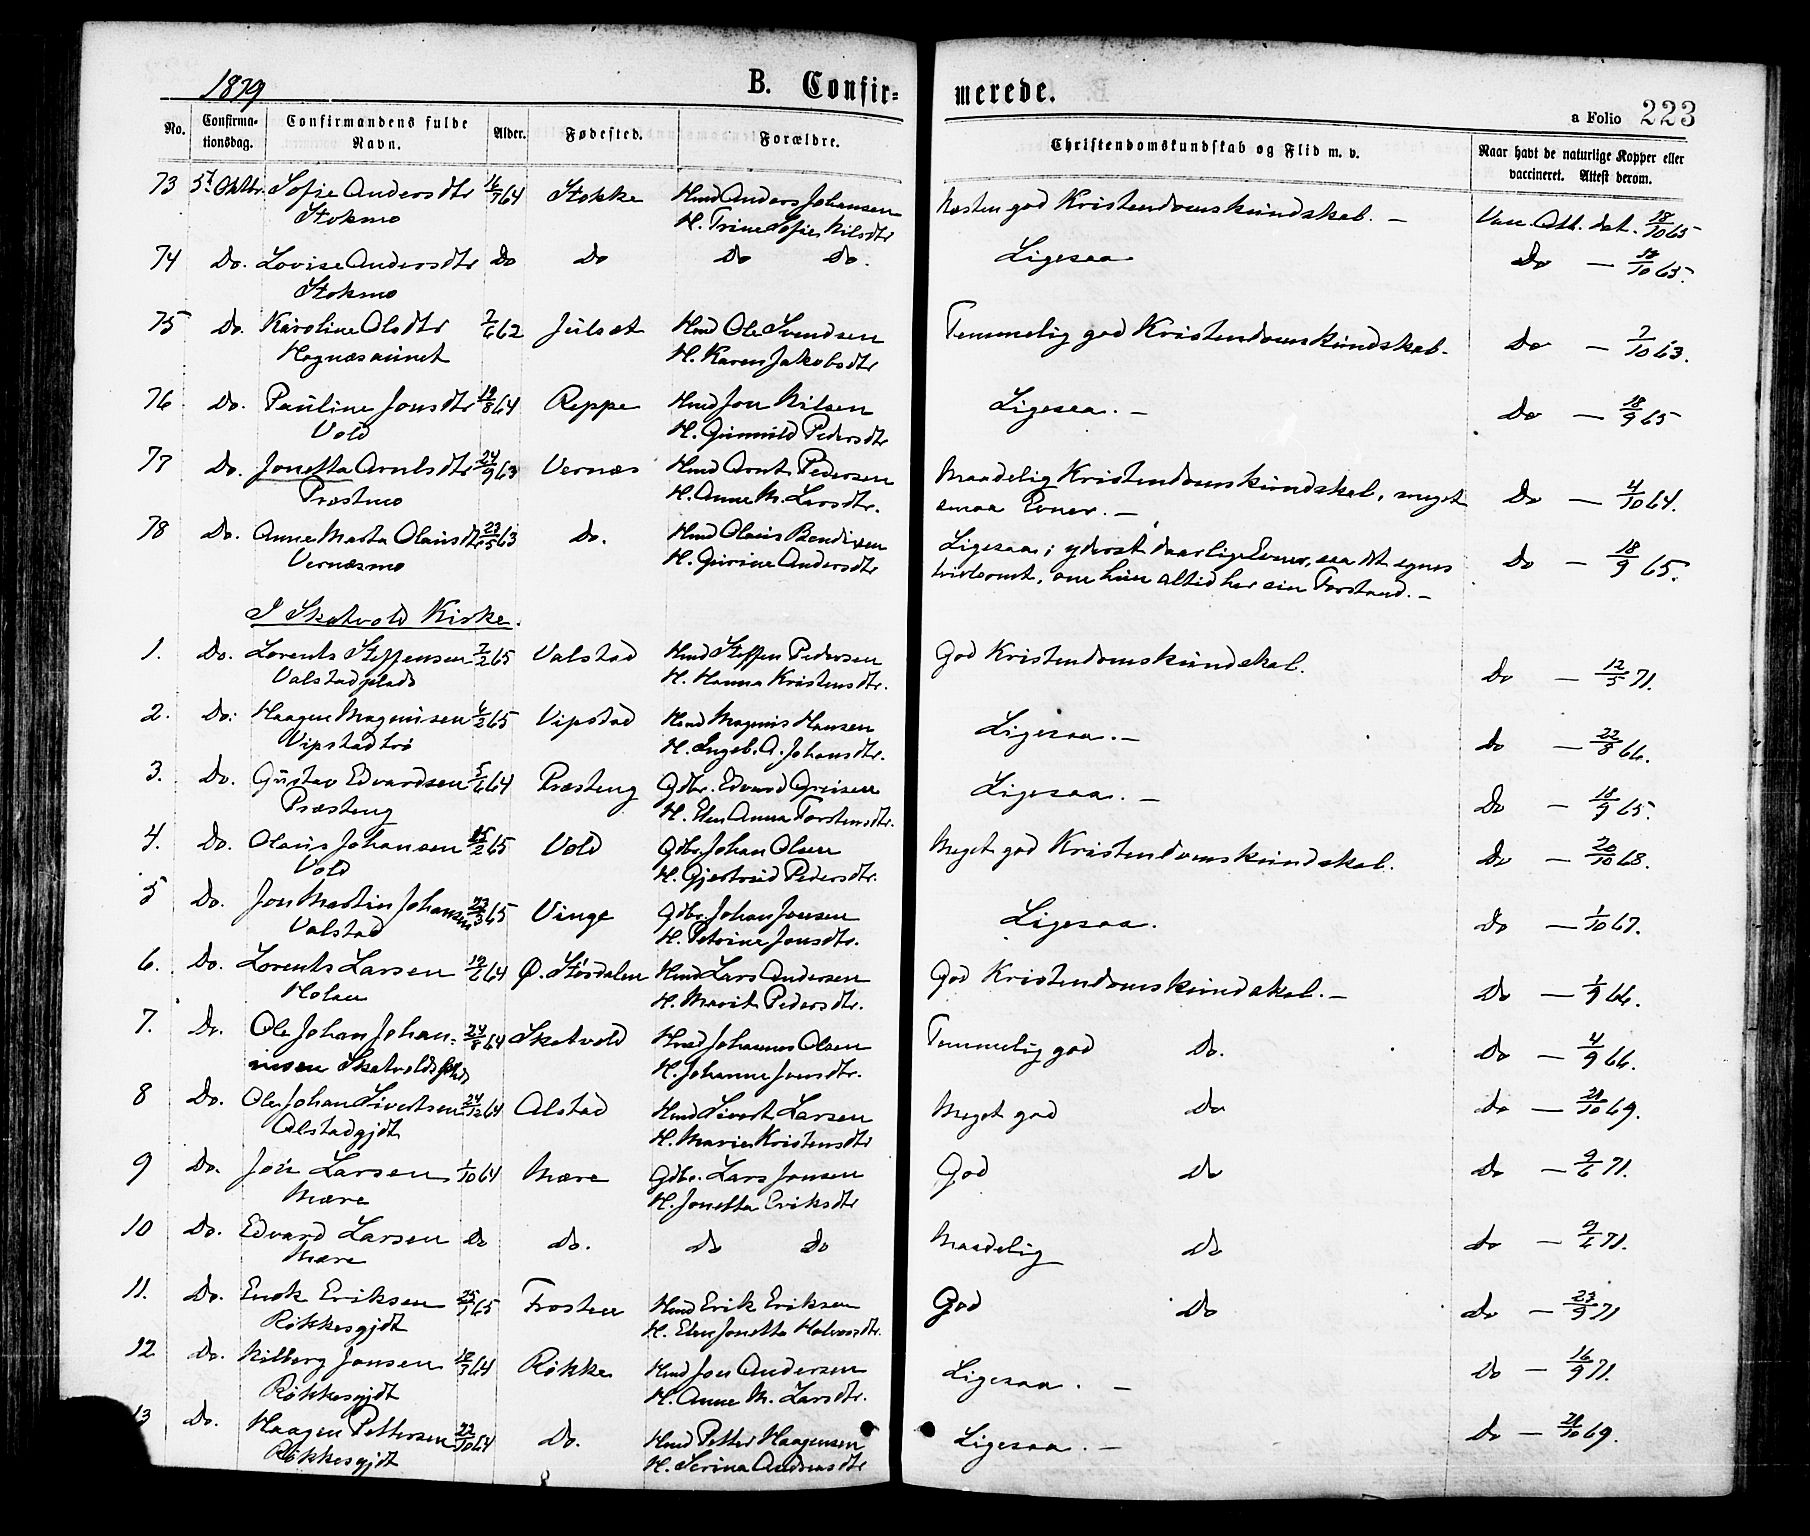 1879
B. Confir=
merede.
a Folio 223
No.
Confirma-
tionsdag.
Confirmandens fulde
Navn.
Alder.
Fødested.
Forældre.
Christendomskundskab og Flid m. v.
Naar havt de naturlige Kopper eller
vaccineret. Attest derom.
73 5t Oktbr. Sofie Andersdtr 16/7 64 Stokke Hmd Anders Johansen Næsten god Kristendomskundskab. — Vacc. Att. dat. 18/10 65
Stokmo H. Trine Sofie Nilsdtr
74 Do. Lovise Andersdtr Do Do Do Do. Ligesaa Do — 18/10 65.
Stokmo
75 Do. Karoline Olsdtr 2/6 62 Julset Hmd Ole Svendsen Temmelig god Kristendomskundskab. Do — 7/10 63.
Hognæsaunet H. Karen Jakobsdtr
76 Do. Pauline Jonsdtr 19/8 64 Reppe Hmd Jon Nilsen Ligesaa. — Do — 18/9 65
Vold H. Gunnild Pedersdtr
77 Do. Jonetta Arntsdtr 24/9 63 Vernæs Hmd Arnt Pedersen Maadelig Kristendomskundskab, meget Do — 4/10 64.
Præstmo H. Anne M. Larsdtr. smaa Evner. —
78 Do. Anne Marta Olausdtr 23/5 63 Do. Hmd Olaus Bendixen Ligesaa; yderst daarlige Evner, saa dt synes Do — 18/9 65.
Vernæsmo H. Gurine Andersdtr tvivlsomt, om hun altid har sin Forstand. —
I Skatvold Kirke.
1. Do. Lorents Steffensen 7/2 65 Valstad Hmd Steffen Pedersen God Kristendomskundskab. Do — 12/5 71.
Valstadplads H. Hanna Kristensdtr.
2. Do: Haagen Magnusen 4/2 65 Vipstad Hmd Magnus Hansen Ligesaa. — Do — 22/8 66.
Vipstadtrø H. Ingeb. A. Johansdtr.
3. Do. Gustav Edvardsen 5/6 64 Præsteng Gdbr. Edvard Greisen Ligesaa. — Do — 18/9 65.
Præsteng H. Elen Anna Torstensdtr.
4. Do. Olaus Johansen 15/2 65 Vold Gdbr. Johan Olsen Meget god Kristendomskundskab. Do — 20/10 68.
Vold H. Gjertrud Pedersdtr.
5 Do. Jon Martin Johansen 23/3 65 Vinge Gdbr. Johan Jonsen Ligesaa. Do — 1/10 67.
Valstad H. Petrine Jonsdtr.
6. Do. Lorents Larsen 19/6 64 Ø. Størdalen Hmd Lars Andersen God Kristendomskundskab. — Do — 1/9 66.
Holan H. Marit Pedersdtr.
7. Do. Ole Johan Johan= 24/8 64 Skatvold Hmd Johannes Olsen Temmelig god Do. Do — 4/9 66.
nesen Skatvoldsplads H. Johanna Jonsdtr.
8 Do. Ole Johan Sivertsen 24/12 64 Alstad Hmd Sivert Larsen Meget god Do Do — 21/10 69.
Alstadgjdt H. Marie Kristensdtr
9 Do. Jon Larsen 1/10 64 Mære Gdbr. Lars Jonsen God Do Do — 9/6 71.
Mære H. Jonetta Eriksdtr
10 Do. Edvard Larsen Do Do. Do Do Maadelig Do Do — 9/6 71.
Mære
11. Do. Enok Eriksen 25/1 65 Frosten Hmd Erik Eriksen God Do Do — 23/9 71
Røkkesgjdt H. Elen Jonetta Halvorsdtr.
12 Do. Nilberg Jonsen 18/7 64 Røkke Hmd Jon Andersen Ligesaa. — Do — 16/9 71.
Røkkesgjdt H. Anne M. Larsdtr.
13 Do. Haagen Pettersen 22/10 64 Do. Hmd Petter Haagensen Ligesaa. — Do — 21/10 69.
Røkkesgjdt H. Serina Andreasdtr